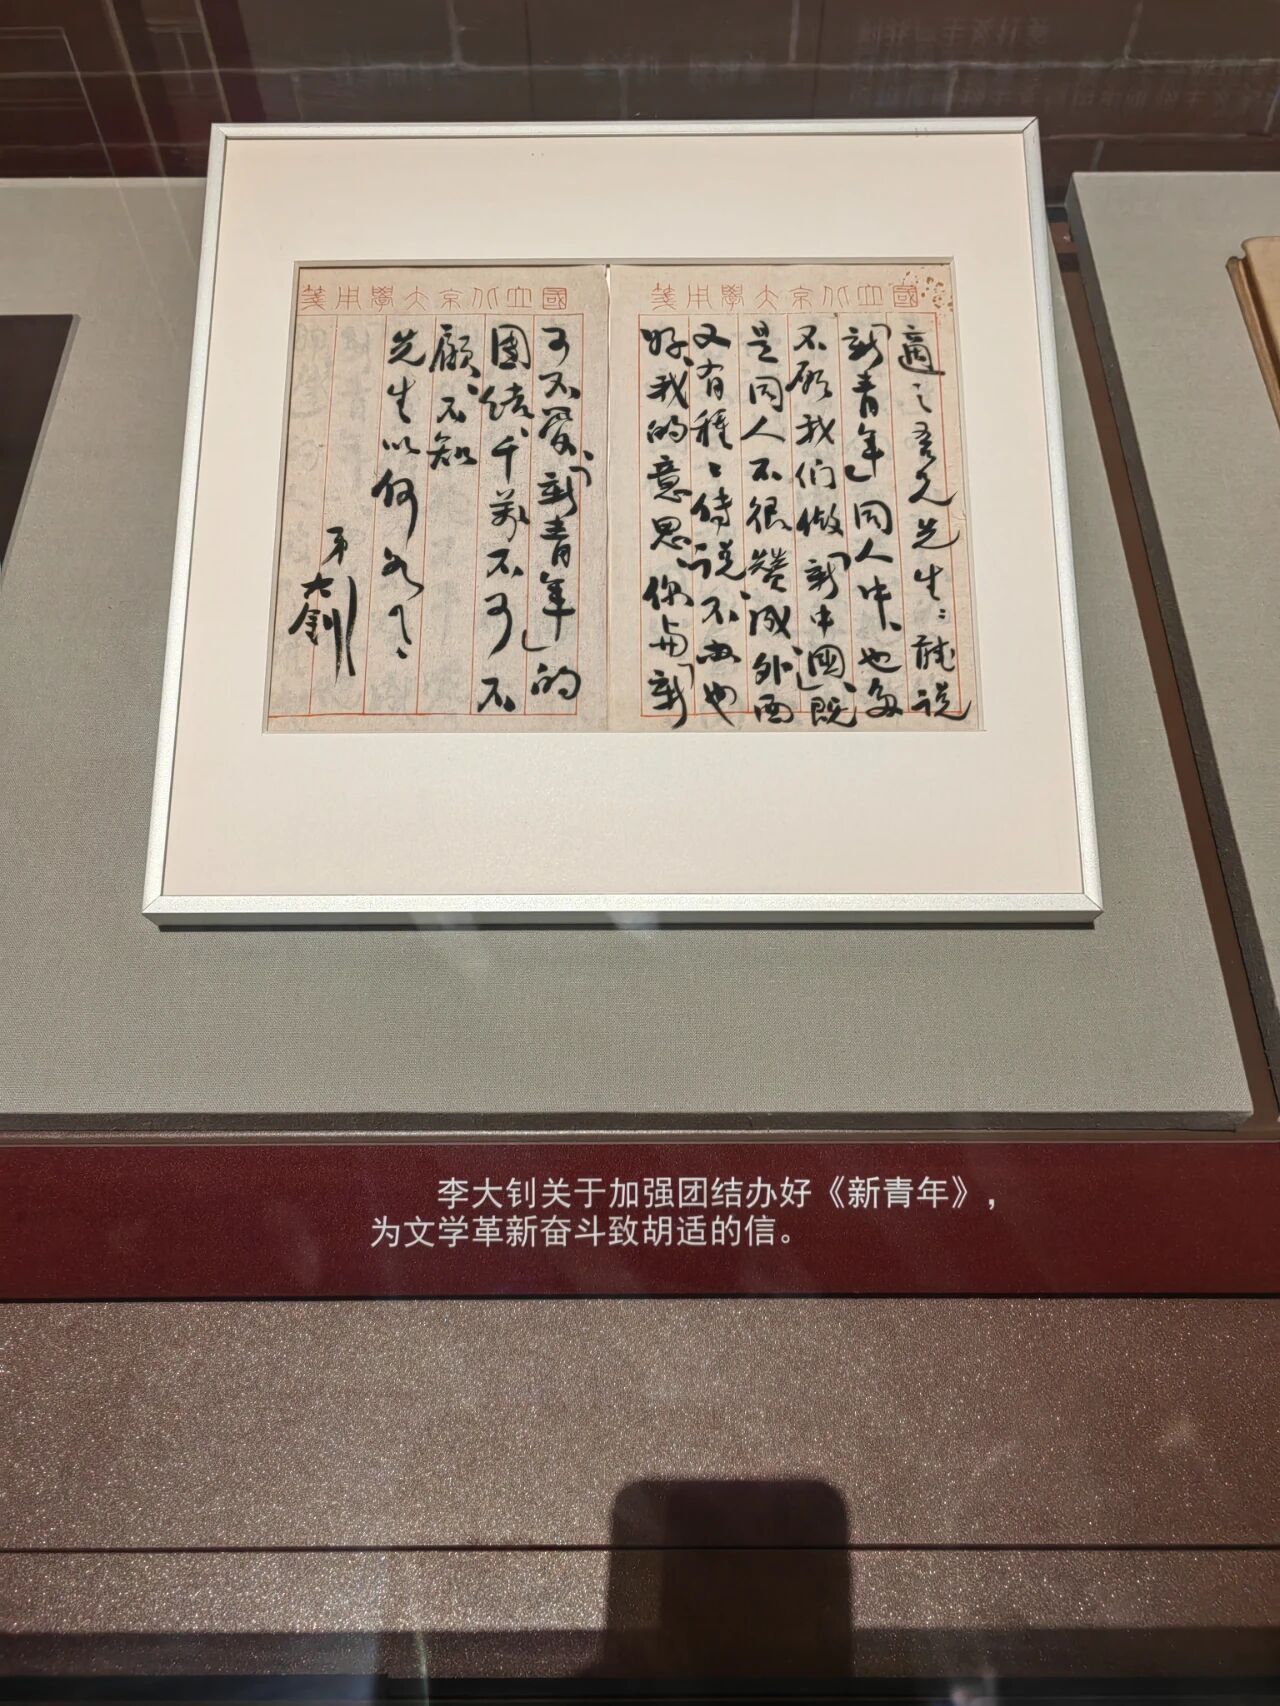 國立北京大學用箋
適之吾兄先生：聽説
「新青年」同人中、也多
不願我们做「新中國」、既
是同人不很贊成、外面
又有種〻傳説、不办也
好、我的意思、你與「新
國立北京大學用箋
可不愛、「新青年」的
團結、千萬不可不
顧、不知
先生以何如？
弟
大釗
李大钊关于加强团结办好《新青年》，
为文学革新奋斗致胡适的信。